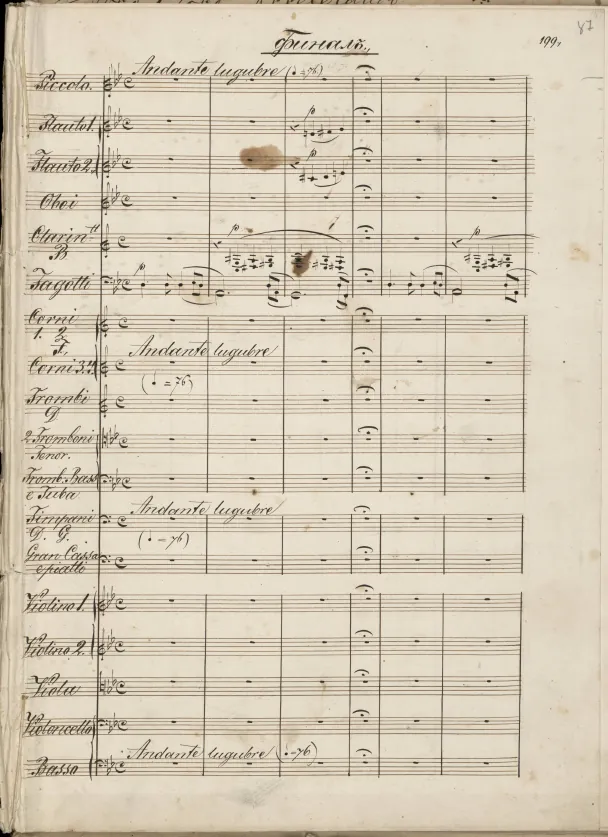 87
Финалъ.
199.
Andante lugubre (♩=76)
Piccolo.
Flauto 1.
p
Flauto 2.
p
Oboi
Clarin:tti
B
p
p
Fagotti
p
Corni
1. 2.
F.
Andante lugubre
Corni 3.4.
(♩=76)
Trombi
D
2 Tromboni
Tenor.
Tromb. Bass
e Tuba
Andante lugubre
Timpani
D. G.
(♩=76)
Gran Cassa
e piatti
Violino 1.
Violino 2.
Viola
Violoncello
Andante lugubre (♩=76)
Basso